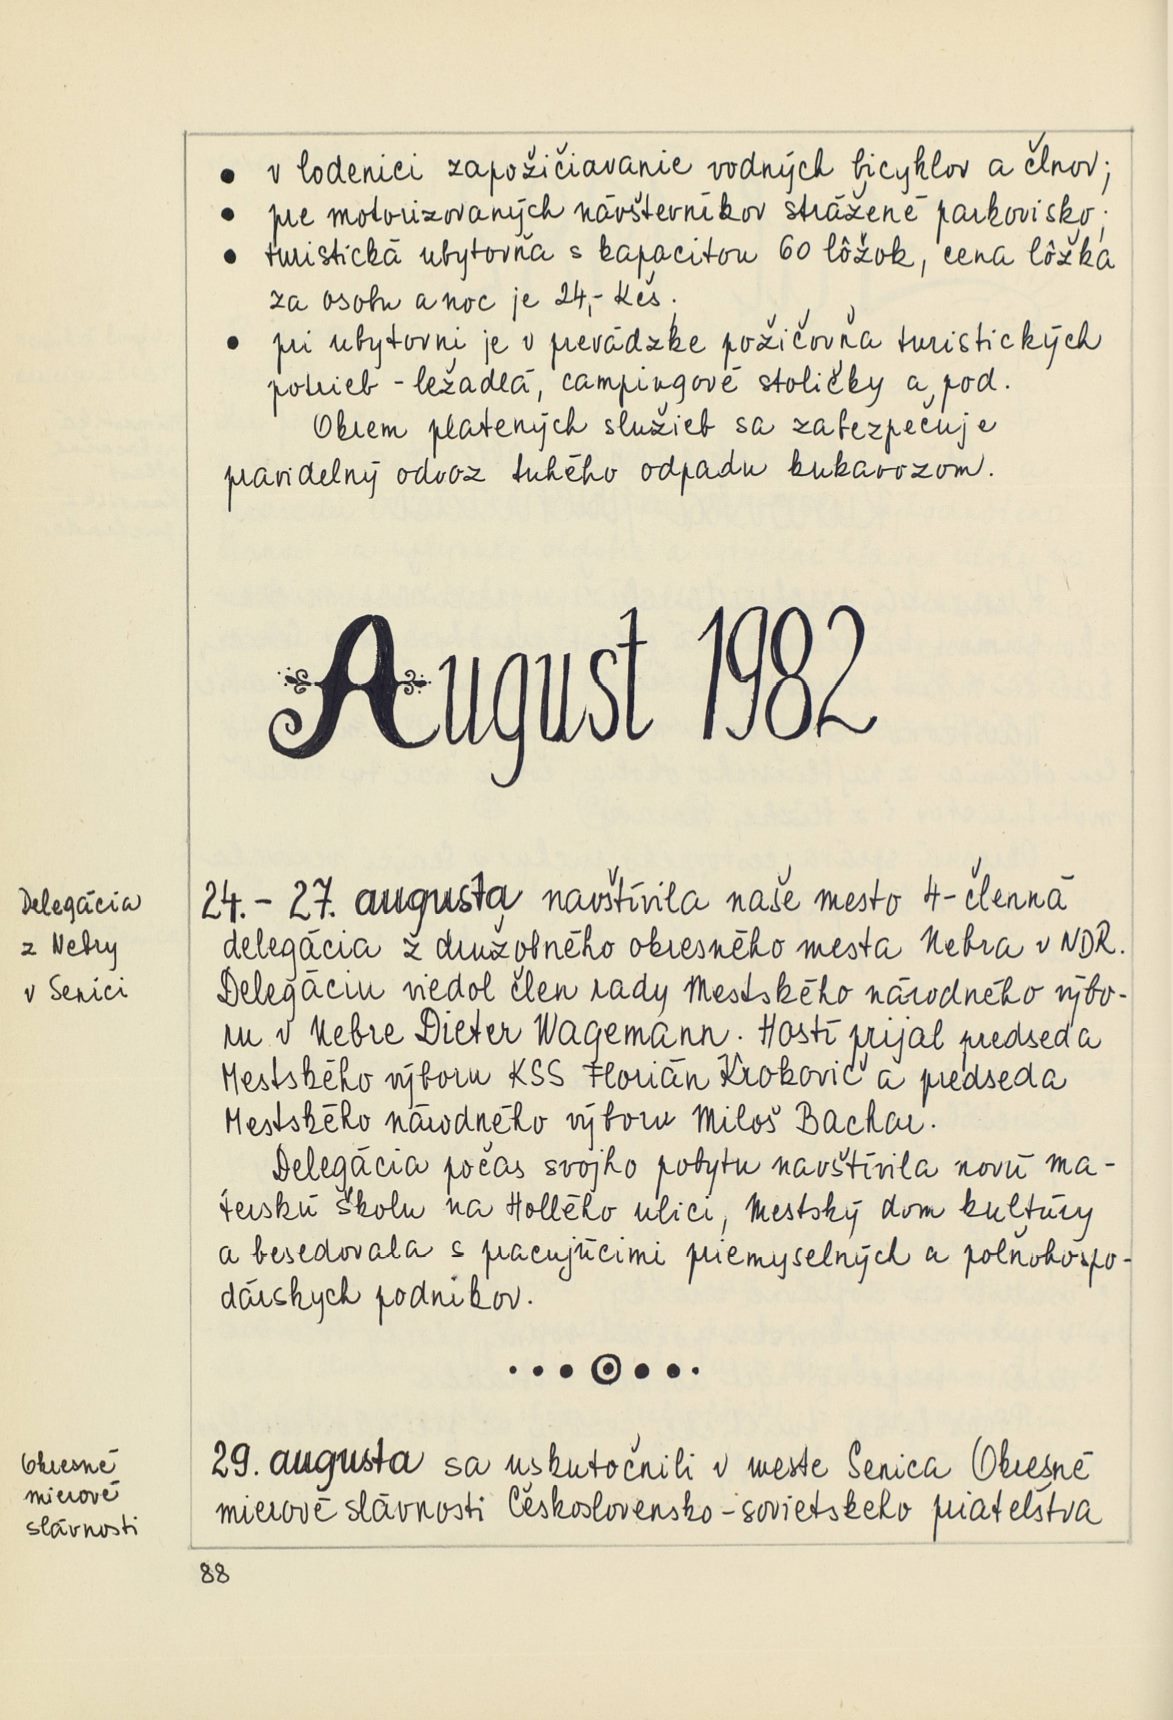 • v lodenici zapožičiavanie vodných bicyklov a člnov;
• pre motorizovaných návštevníkov strážené parkovisko;
• turistická ubytovňa s kapacitou 60 lôžok, cena lôžka
za osobu a noc je 24,- Kčs;
• pri ubytovni je v prevádzke požičovňa turistických
potrieb - ležadlá, campingové stoličky a pod.
Okrem platených služieb sa zabezpečuje
pravidelný odvoz tuhého odpadu kukavozom.
August 1982
Delegácia
z Nebry
v Senici
24. - 27. augusta navštívila naše mesto 4-členná
delegácia z družobného okresného mesta Nebra v NDR.
Delegáciu viedol člen rady Mestského národného výbo-
ru v Nebre Dieter Wagemann. Hostí prijal predseda
Mestského výboru KSS Florián Krokovič a predseda
Mestského národného výboru Miloš Bachar.
Delegácia počas svojho pobytu navštívila novú ma-
terskú školu na Hollého ulici, Mestský dom kultúry
a besedovala s pracujúcimi priemyselných a poľnohospo-
dárskych podnikov.
Okresné
mierové
slávnosti
29. augusta sa uskutočnili v meste Senica Okresné
mierové slávnosti Československo-sovietskeho priateľstva
88